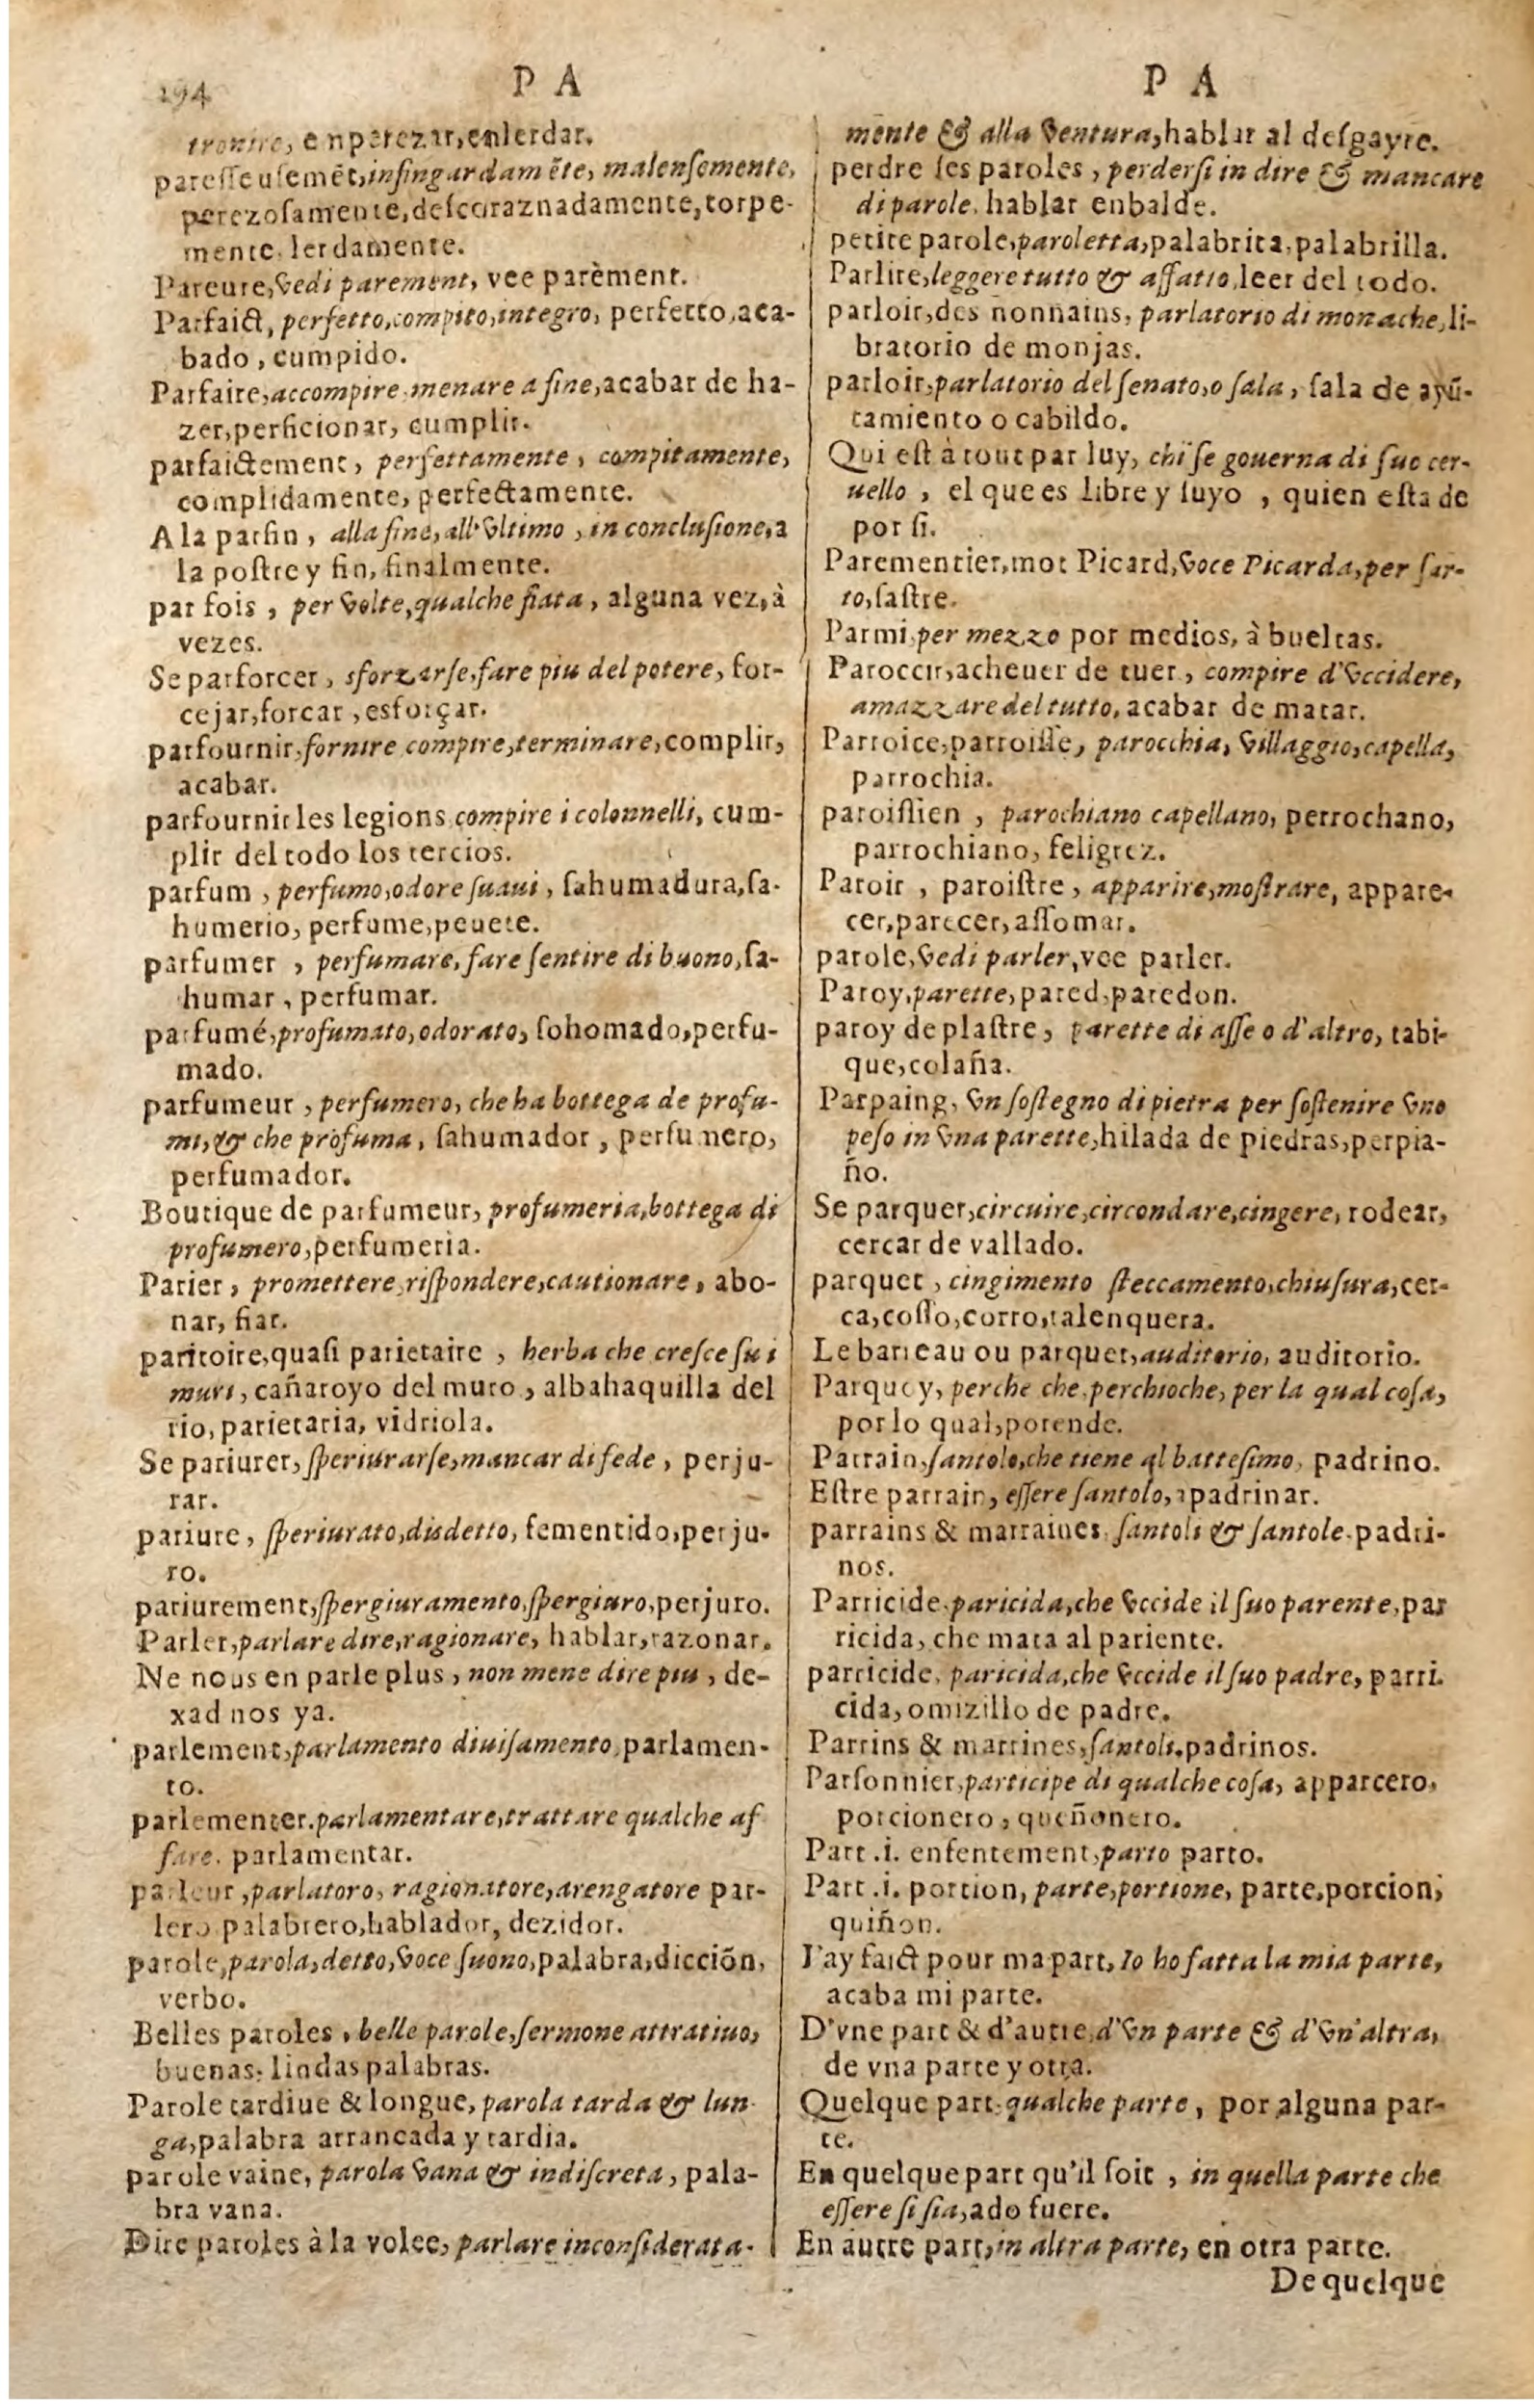 294
P A
tronire, enperezar, enlerdar.
paresseusemẽt, insingardamẽte, malensemente,
perezosamente, descoraznadamente, torpe-
mente, lerdamente.
Pareure, vedi parement, vee parèment.
Parfaict, perfetto, compito, integro, perfecto, aca-
bado, cumpido.
Parfaire, accompire, menare a fine, acabar de ha-
zer, perficionar, cumplir.
parfaictement, perfettamente, compitamente,
complidamente, perfectamente.
A la parfin, alla fine, all'vltimo, in conclusione, a
la postre y fin, finalmente.
par fois, per volte, qualche fiata, alguna vez, à
vezes.
Se parforcer, sforzarse, fare piu del potere, for-
cejar, forcar, esforçar.
parfournir, fornire compire, terminare, complir,
acabar.
parfournir les legions compire i colonnelli, cum-
plir del todo los tercios.
parfum, perfumo, odore suaui, sahumadura, sa-
humerio, perfume, peuete.
parfumer, perfumare, fare sentire di buono, sa-
humar, perfumar.
parfumé, profumato, odorato, sohomado, perfu-
mado.
parfumeur, perfumero, che ha bottega de profu-
mi, & che profuma, sahumador, perfumero,
perfumador.
Boutique de parfumeur, profumeria, bottega di
profumero, perfumeria.
Parier, promettere, rispondere, cautionare, abo-
nar, fiar.
paritoire, quasi parietaire, herba che cresce su i
muri, cañaroyo del muro, albahaquilla del
rio, parietaria, vidriola.
Se pariurer, speriurarse, mancar di fede, perju-
rar.
pariure, speriurato, disdetto, fementido, perju-
ro.
pariurement, spergiuramento, spergiuro, perjuro.
Parler, parlare dire, ragionare, hablar, razonar.
Ne nous en parle plus, non mene dire piu, de-
xad nos ya.
parlement, parlamento diuisamento, parlamen-
to.
parlementer. parlamentare, trattare qualche af
fare. parlamentar.
parleur, parlatoro, ragionatore, arengatore par-
lero palabrero, hablador, dezidor.
parole, parola, detto, voce suono, palabra, dicciõn,
verbo.
Belles paroles, belle parole, sermone attratiuo,
buenas, lindas palabras.
Parole tardiue & longue, parola tarda & lun-
ga, palabra arrancada y tardia.
parole vaine, parola vana & indiscreta, pala-
bra vana.
Dire paroles à la volee, parlare inconsiderata-
P A
mente & alla ventura, hablar al desgayre.
perdre ses paroles, perdersi in dire & mancare
di parole, hablar enbalde.
petite parole, paroletta, palabrita, palabrilla.
Parlire, leggere tutto & affatto, leer del todo.
parloir, des nonnains, parlatorio di monache, li-
bratorio de monjas.
parloir, parlatorio del senato, o sala, sala de ayũ-
tamiento o cabildo.
Qui est à tout par luy, chi se gouerna di suo cer-
uello, el que es libre y suyo, quien esta de
por si.
Parementier, mot Picard, voce Picarda, per sar-
to, sastre.
Parmi, per mezzo por medios, à bueltas.
Paroccir, acheuer de tuer, compire d'vccidere,
amazzare del tutto, acabar de matar.
Parroice, parroisse, parocchia, villaggio, capella,
parrochia.
paroissien, parochiano capellano, perrochano,
parrochiano, feligrez.
Paroir, paroistre, apparire, mostrare, appare-
cer, parecer, assomar.
parole, vedi parler, vee parler.
Paroy, parette, pared, paredon.
paroy de plastre, parette di asse o d'altro, tabi-
que, colaña.
Parpaing, vn sostegno di pietra per sostenire vno
peso in vna parette, hilada de piedras, perpia-
ño.
Se parquer, circuire, circondare, cingere, rodear,
cercar de vallado.
parquet, cingimento steccamento, chiusura, cer-
ca, cosso, corro, talenquera.
Le barreau ou parquet, auditorio, auditorio.
Parquoy, perche che, perchioche, per la qual cosa,
por lo qual, porende.
Parrain, santolo, che tiene al battesimo, padrino.
Estre parrain, essere santolo, apadrinar.
parrains & marraines, santoli & santole, padri-
nos.
Parricide, paricida, che vccide il suo parente, par
ricida, che mata al pariente.
parricide, paricida, che vccide il suo padre, parri-
cida, omizillo de padre.
Parrins & marrines, santoli, padrinos.
Parsonnier, participe di qualche cosa, apparcero,
porcionero, queñonero.
Part .i. enfentement, parto parto.
Part .i. portion, parte, portione, parte, porcion,
quiñon.
I'ay faict pour ma part, Io ho fatta la mia parte,
acaba mi parte.
D'vne part & d'autre, d'vn parte & d'vn'altra,
de vna parte y otra.
Quelque part, qualche parte, por alguna par-
te.
En quelque part qu'il soit, in quella parte che
essere si sia, ado fuere.
En autre part, in altra parte, en otra parte.
De quelque